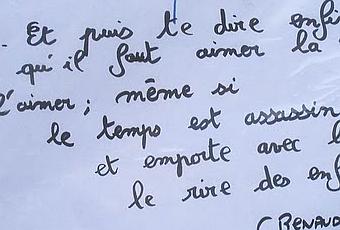 Et puis te dire enfi
qu'il faut aimer la
l'aimer ; même si
le temps est assassin
et emporte avec l
le rire des enf
(RENAUD